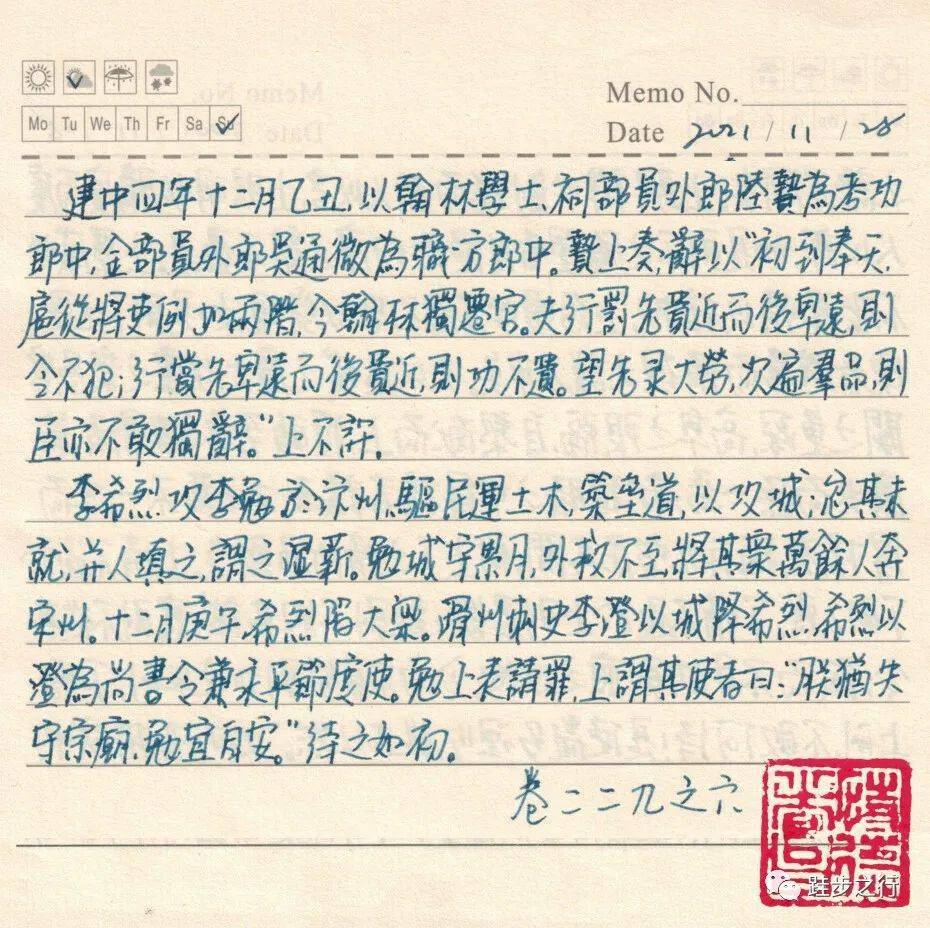 Memo No.
Mo Tu We Th Fr Sa Su
Date 2021 / 11 / 28
建中四年十二月乙丑,以翰林學士、祠部員外郎陸贄為考功
郎中,金部員外郎吳通微為職方郎中。贄上奏,辭以“初到奉天,
扈從將吏例加兩階,今翰林獨遷官。夫行罰先貴近而後卑遠,則
令不犯;行賞先卑遠而後貴近,則功不遺。望先录大勞,次遍羣品,則
臣亦不敢獨辭。”上不許。
李希烈攻李勉於汴州,驅民運土木,築壘道,以攻城;忿其未
就,并人填之,謂之濕薪。勉城守累月,外救不至,將其衆萬餘人奔
宋州。十二月庚午,希烈陷大梁。滑州刺史李澄以城降希烈,希烈以
澄為尚書令兼永平節度使。勉上表請罪,上謂其使者曰:“朕猶失
守宗廟,勉宜自安。”待之如初。
卷二二九之六
跬步之行